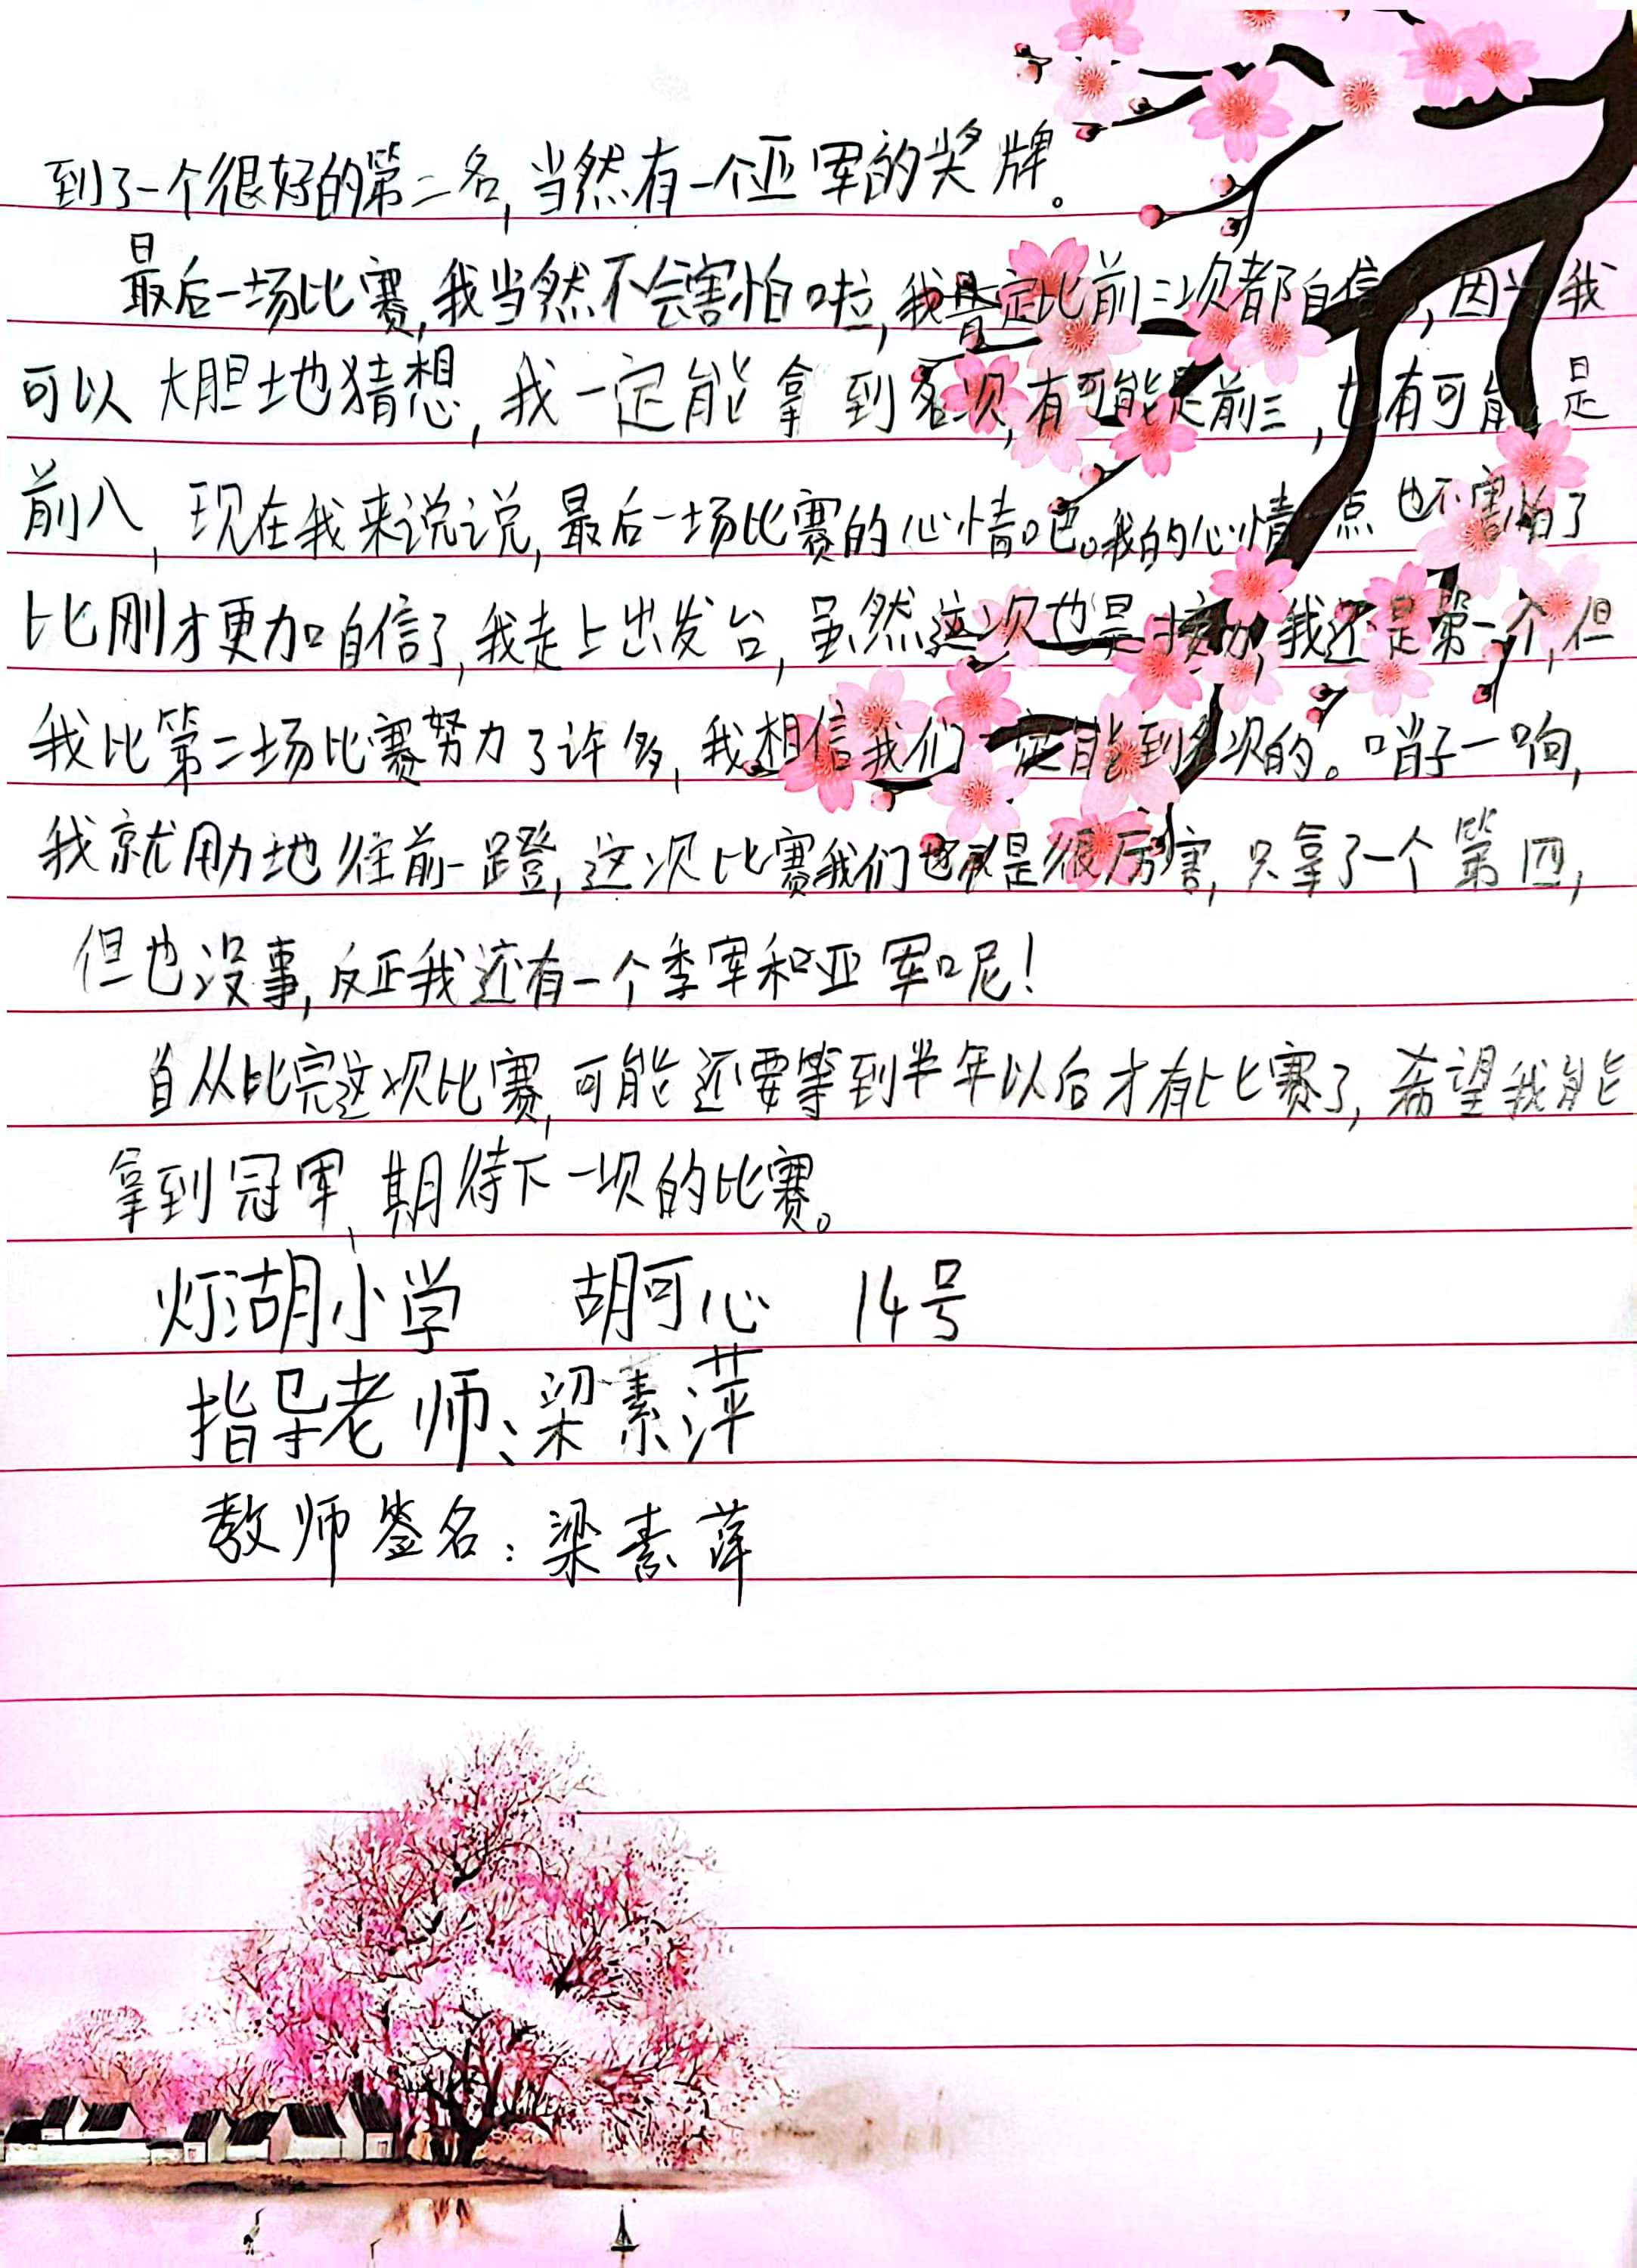 到了一个很好的第二名,当然有一个亚军的奖牌。
最后一场比赛,我当然不会害怕啦,我肯定比前三次都自信,因为我
可以大胆地猜想,我一定能拿到名次,有可能是前三,也有可能是
前八,现在我来说说,最后一场比赛的心情吧。我的心情一点也不害怕了
比刚才更加自信了,我走上出发台,虽然这次也是接力,我还是第一个,但
我比第二场比赛努力了许多,我相信我们一定能到名次的。哨子一响,
我就用力地往前一蹬,这次比赛我们也是很厉害,只拿了一个第四,
但也没事,反正我还有一个季军和亚军呢!
自从比完这次比赛,可能还要等到半年以后才有比赛了,希望我能
拿到冠军,期待下一次的比赛。
灯湖小学 胡可心 14号
指导老师:梁素萍
教师签名:梁素萍